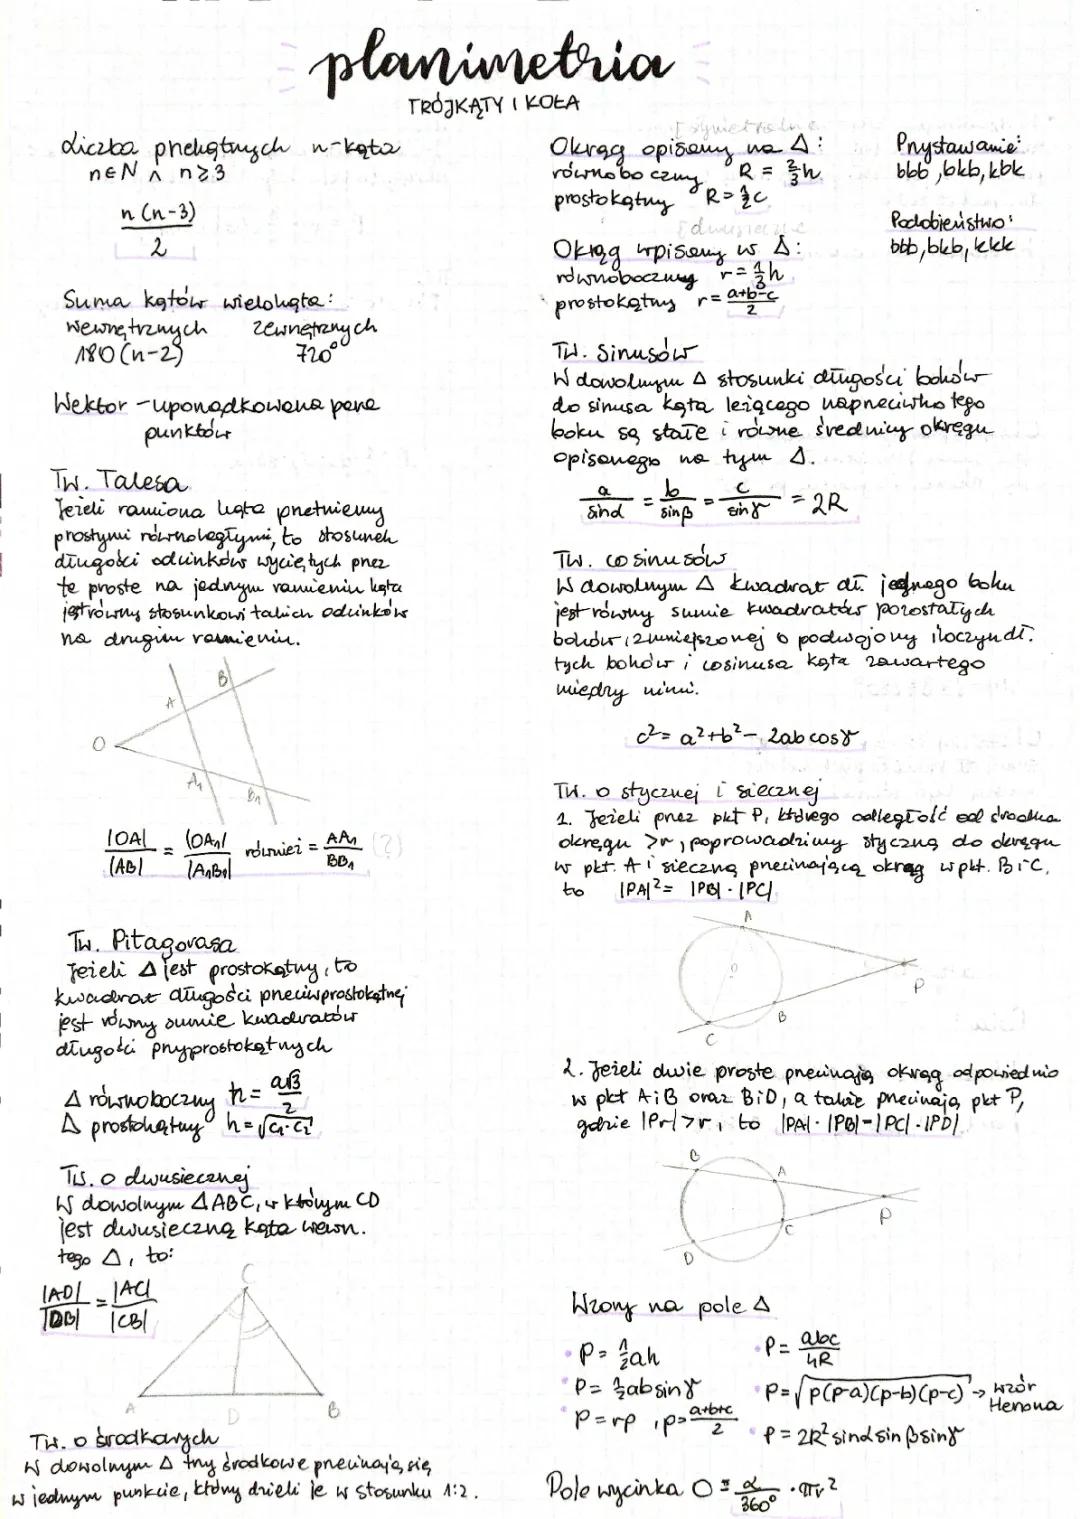 planimetria
TRÓJKĄTY I KOŁA
Liczba przekątnych n-kąta
n∈N ∧ n≥3
n(n-3)
2
Suma kątów wielokąta:
wewnętrznych zewnętrznych
180(n-2) 720°
Wektor - uporządkowana para
punktów
Tw. Talesa
Jeżeli ramiona kąta przetniemy
prostymi równoległymi, to stosunek
długości odcinków wyciętych przez
te proste na jednym ramieniu kąta
jest równy stosunkowi takich odcinków
na drugim ramieniu.
B
A
O
A₁
B₁
|OA| / |AB| = |OA₁| / |A₁B₁| również = AA₁ / BB₁ (?)
Tw. Pitagorasa
Jeżeli Δ jest prostokątny, to
kwadrat długości przeciwprostokątnej
jest równy sumie kwadratów
długości przyprostokątnych
Δ równoboczny h = a√3 / 2
Δ prostokątny h = √c₁·c₂
Tw. o dwusiecznej
W dowolnym ΔABC, w którym CD
jest dwusieczną kąta wewn.
tego Δ, to:
|AD| / |DB| = |AC| / |CB|
C
A D B
Tw. o środkowych
W dowolnym Δ trzy środkowe przecinają się
w jednym punkcie, który dzieli je w stosunku 1:2.
Okrąg opisany na Δ:
równoboczny R = 2/3 h
prostokątny R = 1/2 c
Okrąg wpisany w Δ:
równoboczny r = 1/3 h
prostokątny r = a+b-c / 2
Przystawanie:
bbb, bkb, kbk
Podobieństwo:
bbb, bkb, kkk
Tw. Sinusów
W dowolnym Δ stosunki długości boków
do sinusa kąta leżącego naprzeciwko tego
boku są stałe i równe średnicy okręgu
opisanego na tym Δ.
a / sinα = b / sinβ = c / sinγ = 2R
Tw. cosinusów
W dowolnym Δ kwadrat dł. jednego boku
jest równy sumie kwadratów pozostałych
boków, zmniejszonej o podwojony iloczyn dł.
tych boków i cosinusa kąta zawartego
między nimi.
c² = a²+b² - 2ab cosγ
Tw. o stycznej i siecznej
1. Jeżeli przez pkt P, którego odległość od środka
okręgu >r, poprowadzimy styczną do okręgu
w pkt. A i sieczną przecinającą okrąg w pkt. B i C,
to |PA|² = |PB| · |PC|
A
P
B
C
2. Jeżeli dwie proste przecinają okrąg odpowiednio
w pkt A i B oraz B i D, a także przecinają pkt P,
gdzie |Pr| > r, to |PA| · |PB| = |PC| · |PD|
B
A
P
C
D
Wzory na pole Δ
• P = 1/2 ah
• P = 1/2 ab sinγ
• P = rp, p = a+b+c / 2
• P = abc / 4R
• P = √p(p-a)(p-b)(p-c) → wzór
Herona
• P = 2R² sinα sinβ sinγ
Pole wycinka O = α / 360° · πr²